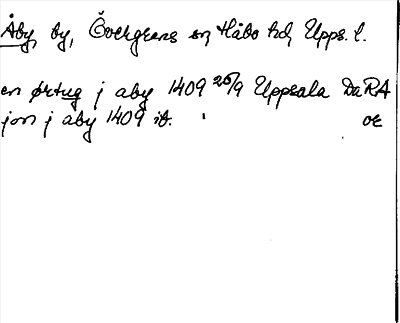 Åby, by, Övergrans sn, Håbo hd, Upps. l.
en ørtug j aby 1409 25/9 Uppsala DaRA
jon j aby 1409 ib. or